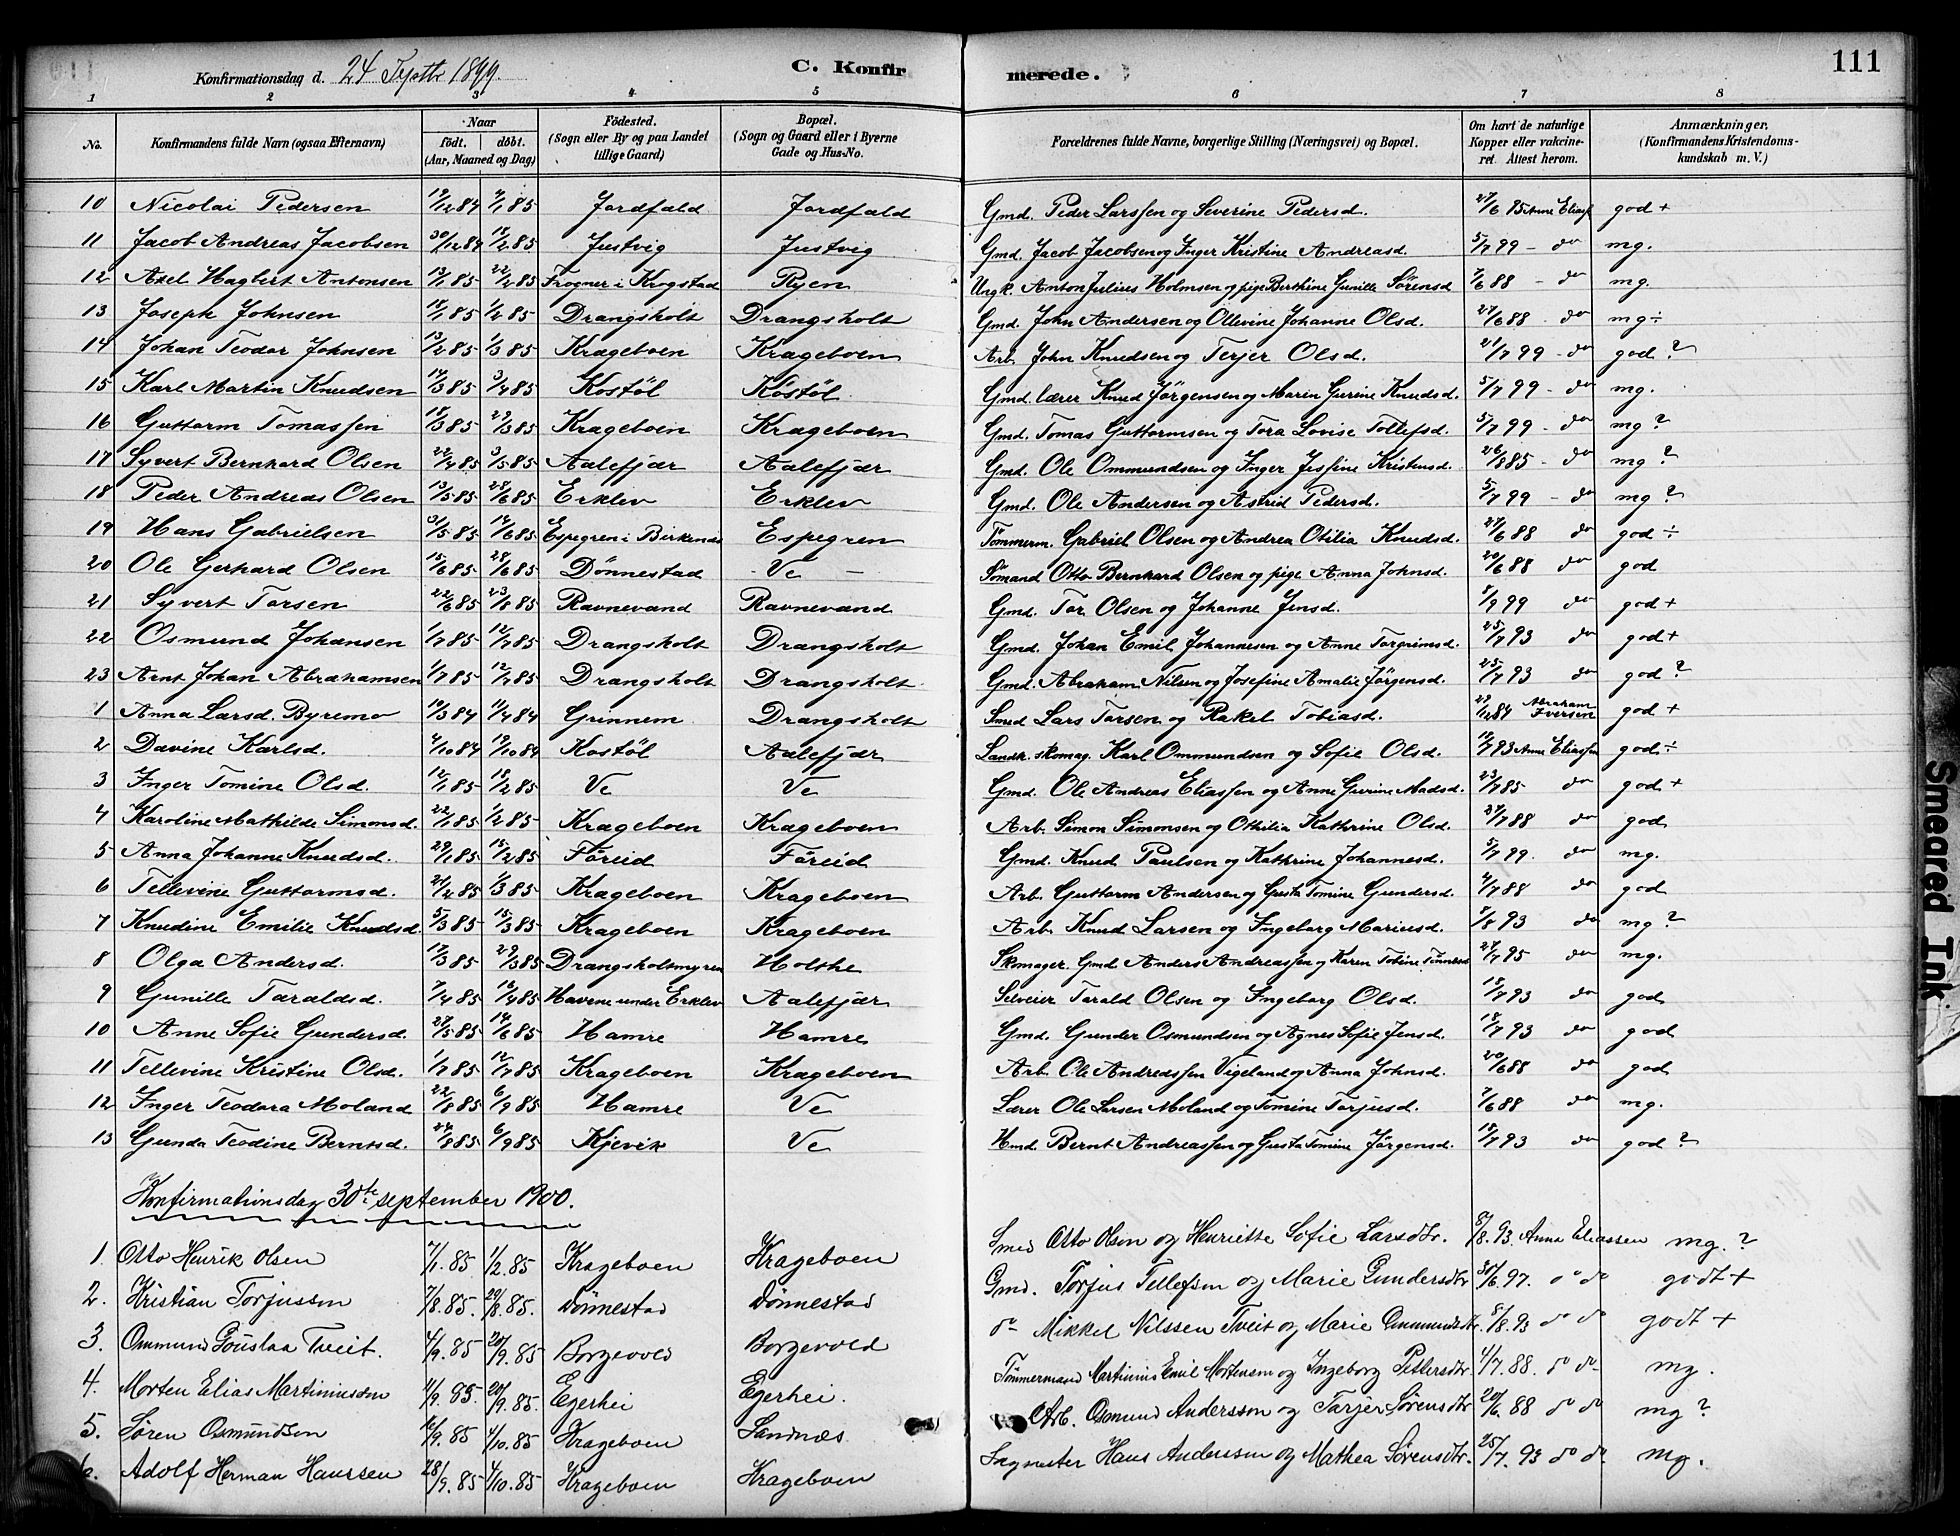 111
Konfirmationsdag d. 24 Septbr 1899. C. Konfirmerede.
1 2 3 4 5 6 7 8
No. Konfirmandens fulde Navn (ogsaa Efternavn) Naar født. døbt. (Aar, Maaned og Dag) Fødested. (Sogn eller By og paa Landet tillige Gaard) Bopæl. (Sogn og Gaard eller i Byerne Gade og Hus-No. Forældrenes fulde Navne, borgerlige Stilling (Næringsvei) og Bopæl. Om havt de naturlige Kopper eller vakcineret. Attest herom. Anmærkninger. (Konfirmandens Kristendomskundskab m. V.)
10 Nicolai Pedersen 19/12 84 4/1 85 Jordfald Jordfald Gmd. Peder Larssen og Severine Pedersd. 27/6 85 Anne Eliass god +
11 Jacob Andreas Jacobsen 30/12 84 15/2 85 Justvig Justvig Gmd. Jacob Jacobsen og Inger Kristine Andreasd. 5/7 99 - do mg.
12 Axel Hagbert Antonsen 13/1 85 22/2 85 Frogner i Krogstad Ryen Ungk. Anton Julius Holmsen og pige Berthine Gunille Sørensd 7/6 88 - do mg.
13 Joseph Johnsen 18/1 85 1/2 85 Drangsholt Drangsholt Gmd. John Andersen og Ollevine Johanne Olsd. 27/6 88 - do mg ÷
14 Johan Teodor Johnsen 13/2 85 1/3 85 Krageboen Krageboen Arb. John Knudsen og Terjer Olsd. 21/7 99 - do god ?
15 Karl Martin Knudsen 14/3 85 3/4 85 Kostøl Kostøl Gmd. lærer Knud Jörgensen og Maren Gurine Knudsd. 5/7 99 - do mg.
16 Guttorm Tomassen 18/3 85 29/3 85 Krageboen Krageboen Gmd. Tomas Guttormsen og Tora Lovise Tollefsd. 5/7 99 - do mg ?
17 Syvert Bernhard Olsen 22/4 85 3/5 85 Aalefjær Aalefjær Gmd. Ole Ommundsen og Inger Jessine Kristensd. 26/8 85 - do mg ?
18 Peder Andreas Olsen 13/5 85 28/6 85 Erklev Erklev Gmd. Ole Andersen og Astrid Pedersd. 5/7 99 - do mg ?
19 Hans Gabrielsen 31/5 85 14/6 85 Espegren i Birkenes Espegren Tömmerm. Gabriel Olsen og Andrea Otilia Knudsd. 27/6 88 do god ÷
20 Ole Gerhard Olsen 15/6 85 28/6 85 Dönnestad - Ve - Sömand Otto Bernhard Olsen og pige Anna Johnsd. 20/6 88 do god
21 Syvert Torsen 22/6 85 23/8 85 Ravnevand Ravnevand Gmd. Tor Olsen og Johanne Jensd. 1/9 99 do god +
22 Osmund Johansen 1/7 85 12/7 85 Drangsholt Drangsholt Gmd. Johan Emil Johannesen og Anne Torgrimsd. 25/7 93 do god +
23 Arnt Johan Abrahamsen 1/7 85 12/7 85 Drangsholt Drangsholt Gmd. Abraham Nilsen og Josefine Amalie Jörgensd. 25/7 93 do god ?
1 Anna Larsd. Byremo 19/3 84 11/4 84 Grinnem Drangsholt Smed Lars Torsen og Rakel Tobiasd. 27/12 84 Abraham Iversen god +
2 Davine Karlsd. 4/10 84 19/10 84 Kostöl Aalefjær Landh. skomag. Karl Ommundsen og Sofie Olsd. 18/7 93 Anne Eliassen god ÷
3 Inger Tomine Olsd. 12/1 85 18/2 85 Ve Ve Gmd. Ole Andreas Eliassen og Anne Gurine Madsd. 23/7 85 do god +
4 Karoline Mathilde Simonsd. 22/1 85 1/2 85 Krageboen Krageboen Arb. Simon Simonsen og Othilia Kathrine Olsd. 27/7 88 do god
5 Anna Johanne Knudsd. 29/1 85 15/2 85 Föreid Föreid Gmd. Knud Paulsen og Kathrine Johannesd. 5/7 99. do mg.
6 Tellevine Guttormsd. 21/2 85 1/3 85 Krageboen Krageboen Arb. Guttorm Andersen og Gusta Tomine Gundersd. 4/7 88 do god
7 Knudine Emilie Knudsd. 5/3 85 15/3 85 Krageboen Krageboen Arb. Knud Larsen og Ingeborg Mariusd. 8/8 93 do mg ?
8 Olga Andersd. 12/3 85 29/3 85 Drangsholtsmyren Holthe Skomager. Gmd Anders Andreassen og Karen Tobine Tönnesd 27/7 95 do mg.
9 Gunille Taraldsd. 7/4 85 16/4 85 Havene under Erklev Aalefjær Selveier Tarald Olsen og Ingeborg Olsd. 18/7 93 do god
10 Anne Sofie Gundersd. 27/5 85 14/6 85 Hamre Hamre Gmd. Gunder Osmundsen og Agnes Sofie Jensd. 18/7 93 do god
11 Tellevine Kristine Olsd. 1/7 85 12/7 85 Krageboen Krageboen Arb. Ole Andreassen Vigeland og Anna Johnsd. 20/6 88 do god
12 Inger Teodora Moland 22/8 85 6/9 85 Hamre Ve Lærer Ole Larsen Moland og Tomine Torjusd. 7/6 88 do mg.
13 Gunda Teodine Berntsd. 24/8 85 6/9 85 Kjevik Ve Hmd. Bernt Andreassen og Gusta Tomine Jörgensd. 18/7 93 do god ?
Konfirmationsdag 30te september 1900.
1. Otto Henrik Olsen 7/1. 85. 1/2. 85 Krageboen Krageboen Smed Otto Olsen og Henriette Sofie Larsdtr. 8/8. 93. Anna Eliassen mg. ?
2. Kristian Torjussen 7/8. 85. 20/8. 85. Dönnestad Dönnestad Gmd. Torjus Tellefsen og Marie Gundersdtr 30/6. 97. do do godt +
3. Ommund Goustaa Tveit. 4/9. 85 20/9. 85 Borgevold Borgevold do Mikkel Nilssen Tveit og Marie Ommundsdtr. 8/8. 93 do do godt +
4. Morten Elias Martiniussen 11/9. 85 20/9. 85. Egerhei Egerhei. Tømmermand Martinius Emil Mortensen og Ingeborg Pettersdtr 4/7. 88. do do mg.
5. Søren Osmundsen 16/9. 85 4/10. 85 Krageboen Sandnæs. Arb. Osmund Anderssen og Tarjer Sørensdtr 20/6. 88 do do mg ?
6. Adolf Herman Hanssen 28/9. 85 4/10. 85 Krageboen Krageboen Sagmester Hans Anderssen og Mathea Sørensdtr. 25/7. 93 do do. mg.
Smeared Ink